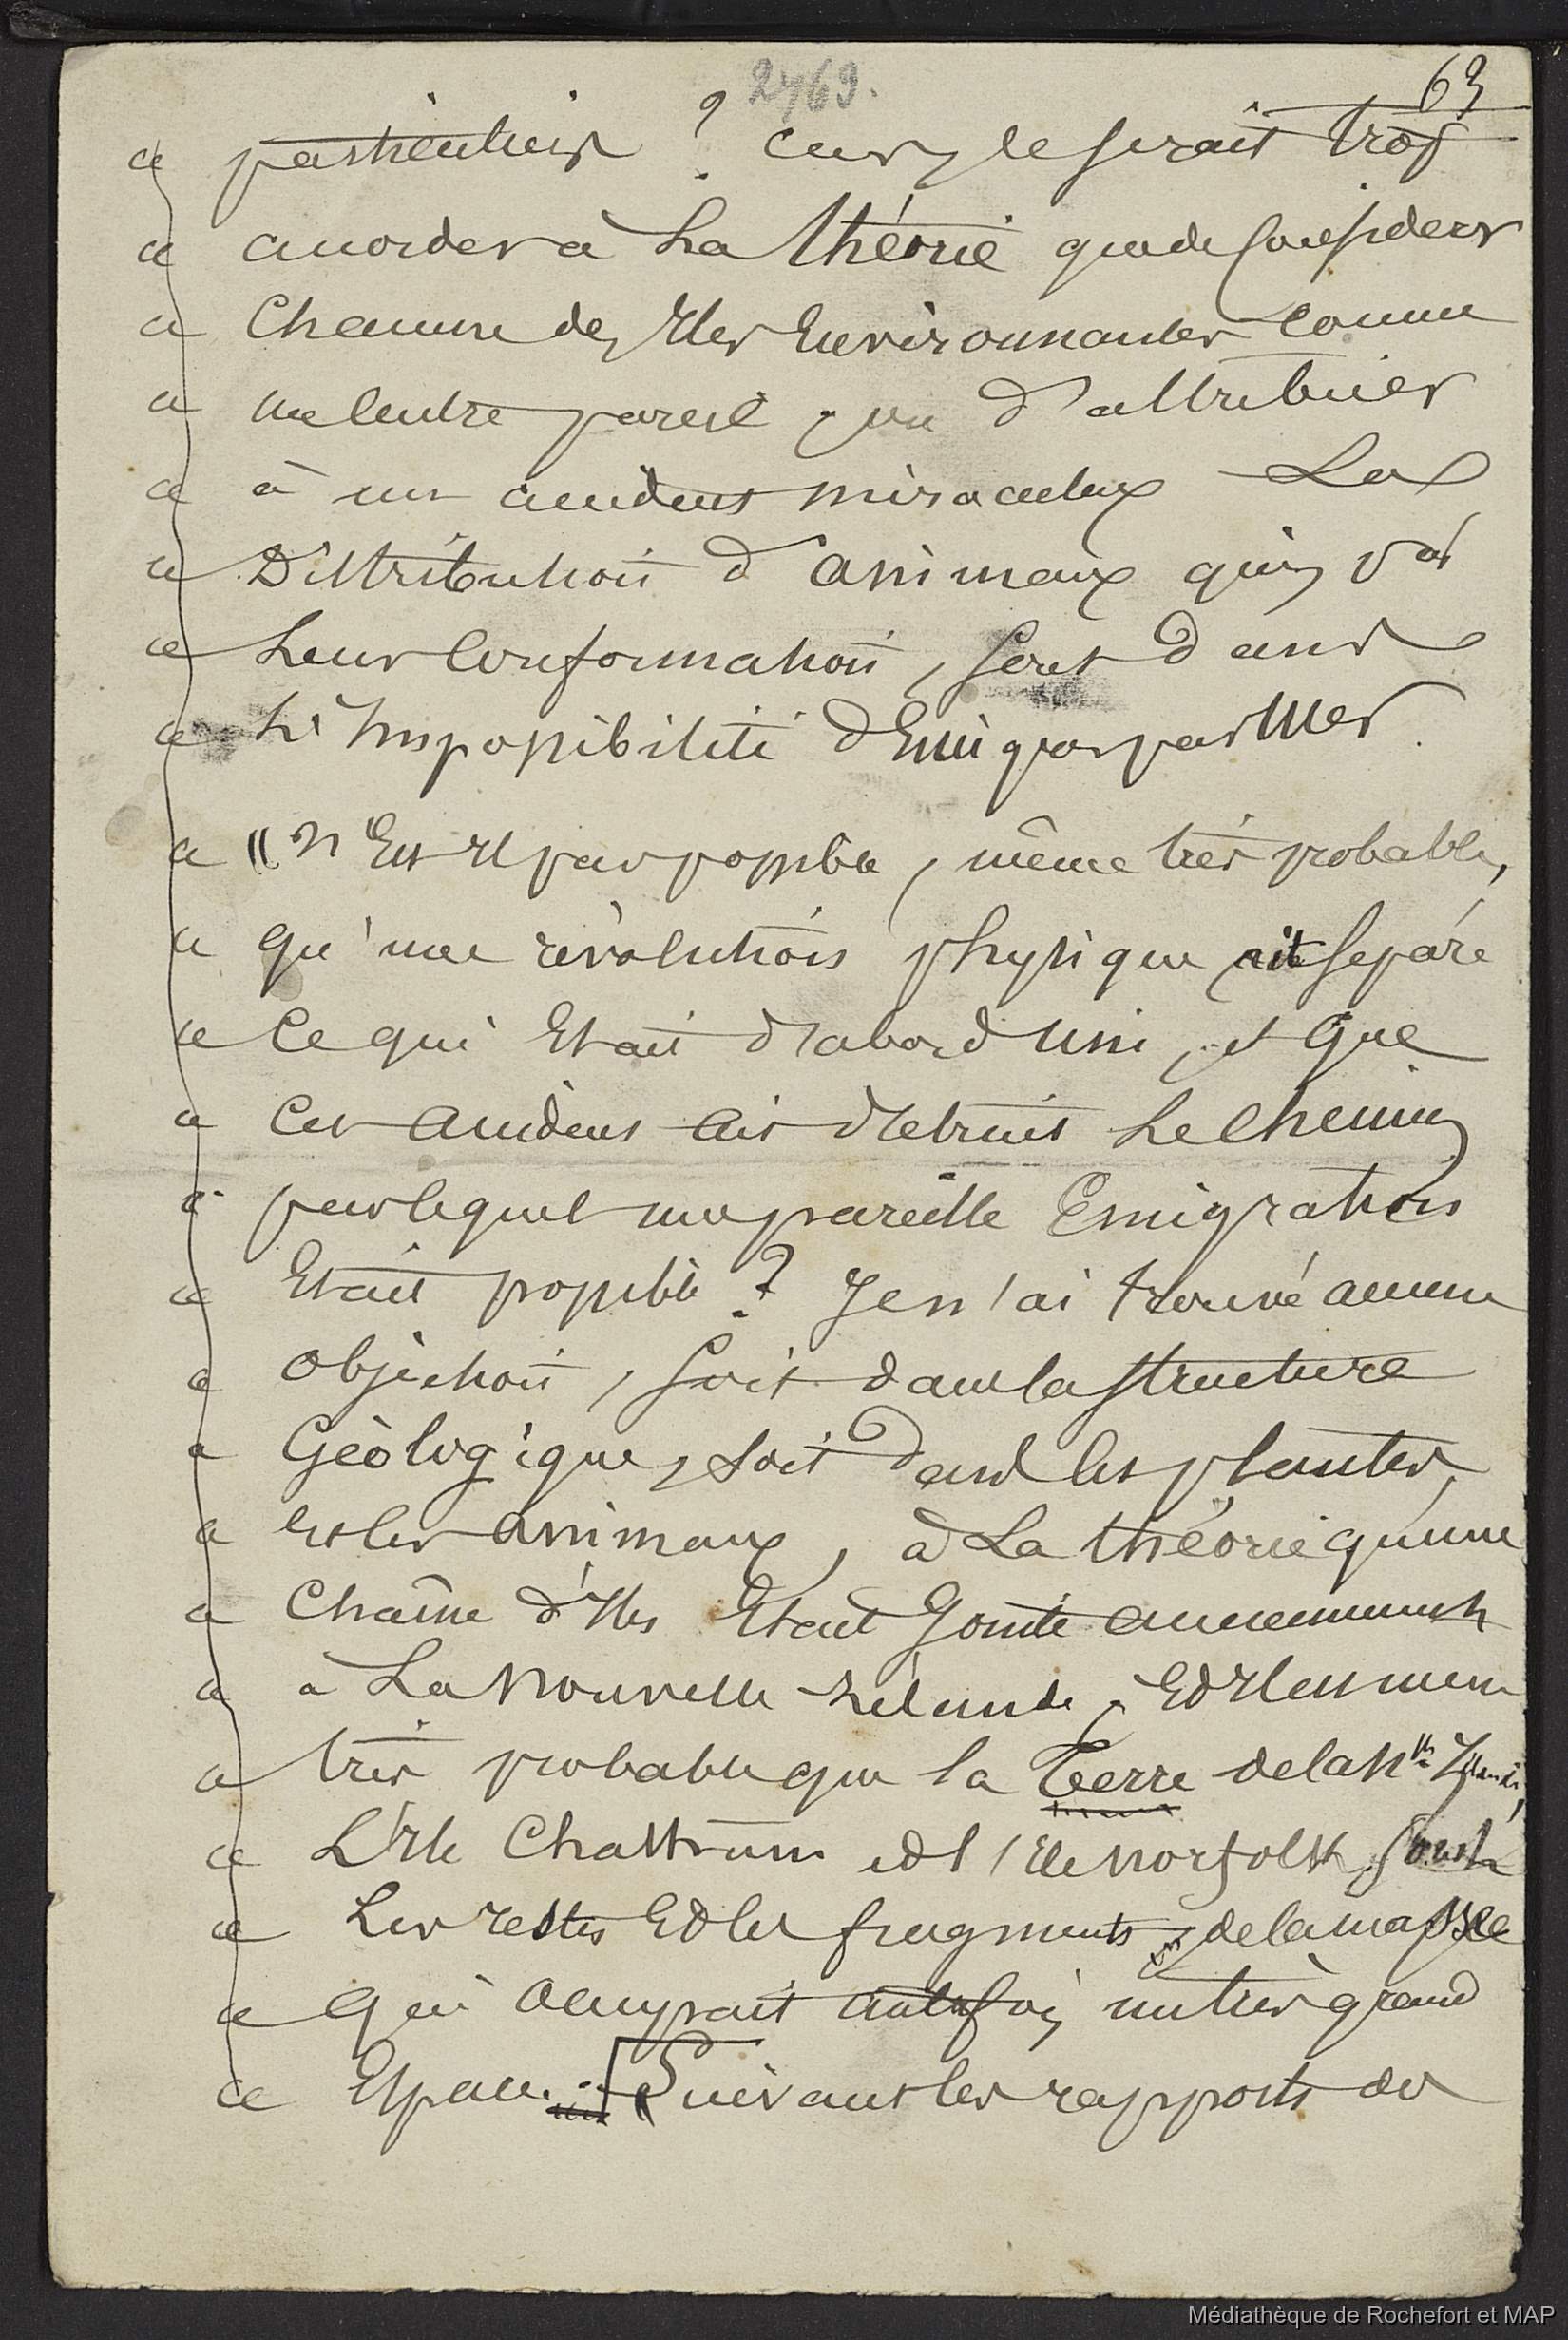 2469.
63
« particulier ? car, ce serait trop
« accorder à La théorie que de Considerer
« Chacune des Iles Environnantes Comme
« un Centre pareil, ou d'attribuer
« à un accident miraculeux La
« Distribution d'animaux qui, vû
« Leur Conformation, sont dans
« L'Impossibilité d'Emigrer par Mer.
« " N'Est Il pas possible, même très probable,
« qu'une révolution physique ait séparé
« Ce qui Etait d'abord uni, et que
« Ces accidens ait détruit Le Chemin
« par lequel une pareille Emigration
« Etait possible ? Je n'ai trouvé aucune
« Objection, soit dans la structure
« Géologique, soit dans les plantes,
« et les animaux, à La théorie qu'une
« Chaîne d'Iles Etait Jointe anciennement
« à La Nouvelle Zélande, Ed Il est même
« très probable que la Terre de la Nlle Zélande,
« L'Ile Chattam ed l'Ile Norfolk sont
« Les restes Ed les fragments de la masse
« qui occupait autrefois, un très grand
« Espace. " Suivant les rapports des
Médiathèque de Rochefort et MAP